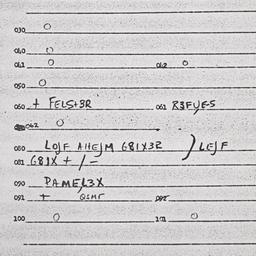 030 O
040 O
041 O 042 O
050 O
060 + FELS+3R 061 R3FYE-5
062 O
080 LOJF AHEJM 681X32 ) LEJF
081 681X + / -
090 PAMEL3X
091 +
100 O 101 O